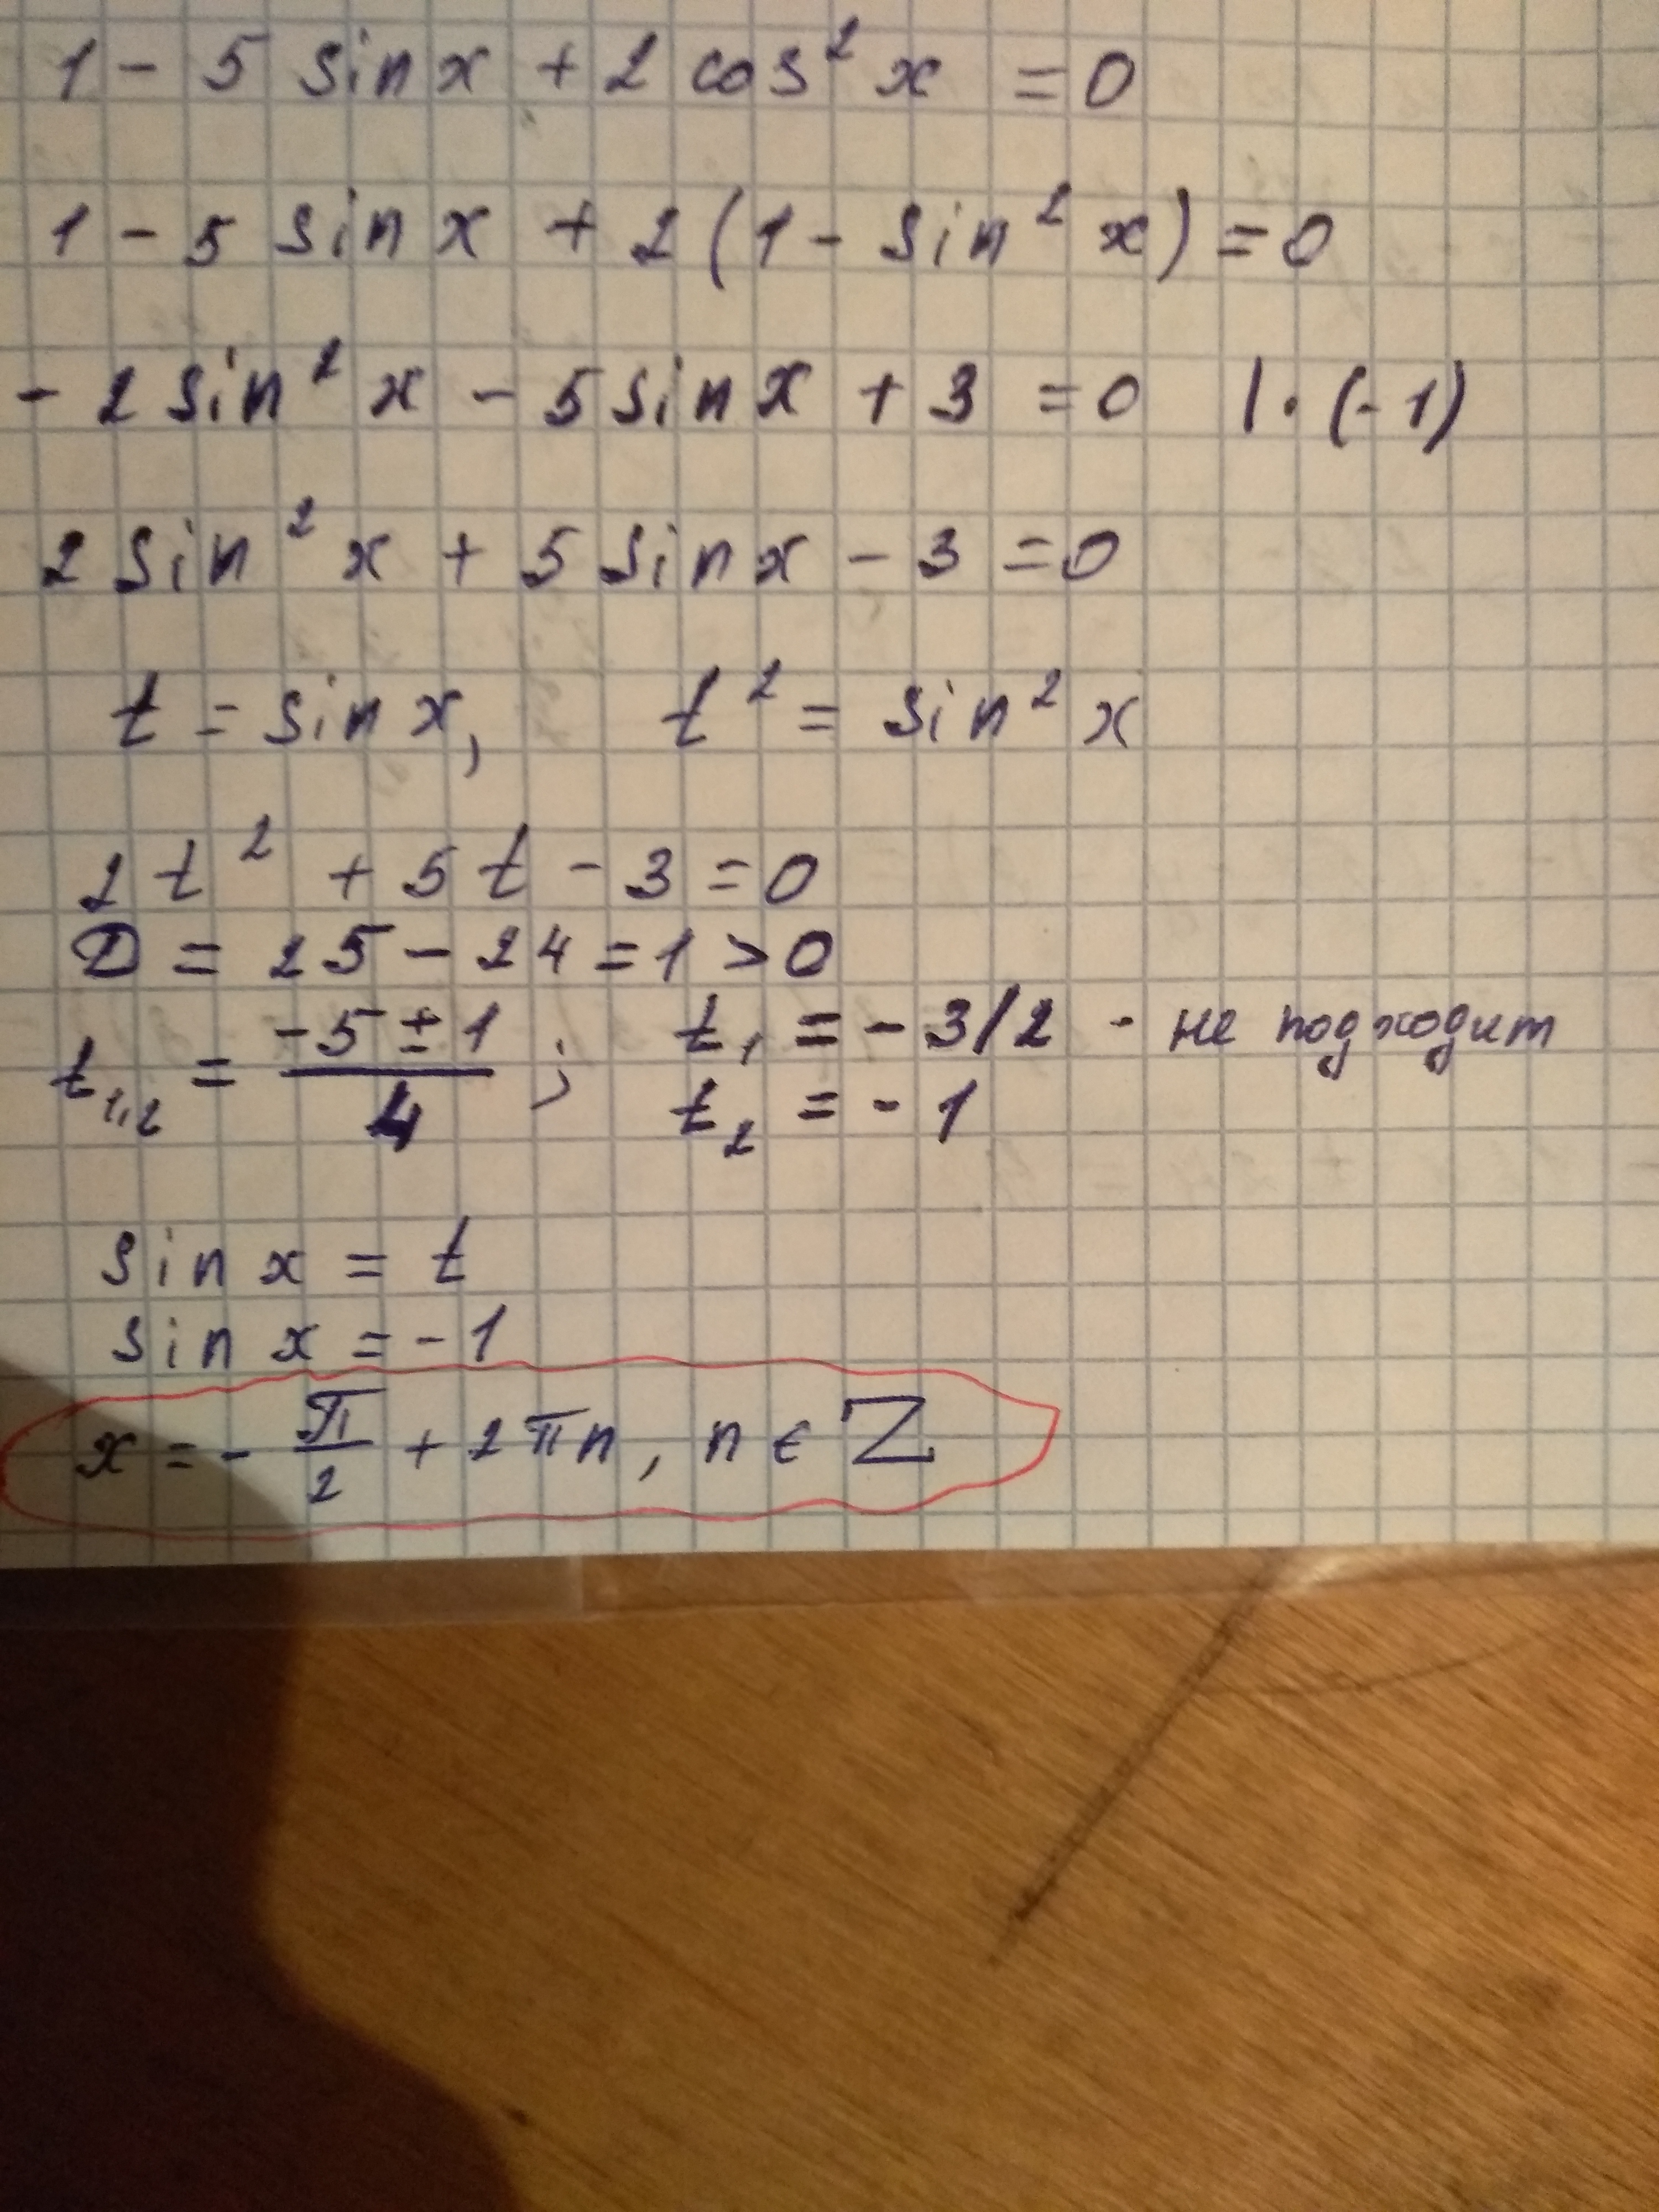 1 - 5 sin x + 2 cos² x = 0
1 - 5 sin x + 2 (1 - sin² x) = 0
- 2 sin² x - 5 sin x + 3 = 0 | · (-1)
2 sin² x + 5 sin x - 3 = 0
t = sin x, t² = sin² x
2 t² + 5 t - 3 = 0
D = 25 - 24 = 1 > 0
t₁,₂ = (-5 ± 1)/4 ; t₁ = - 3/2 - не подходит
t₂ = - 1
sin x = t
sin x = - 1
x = - π/2 + 2 π n, n ∈ Z